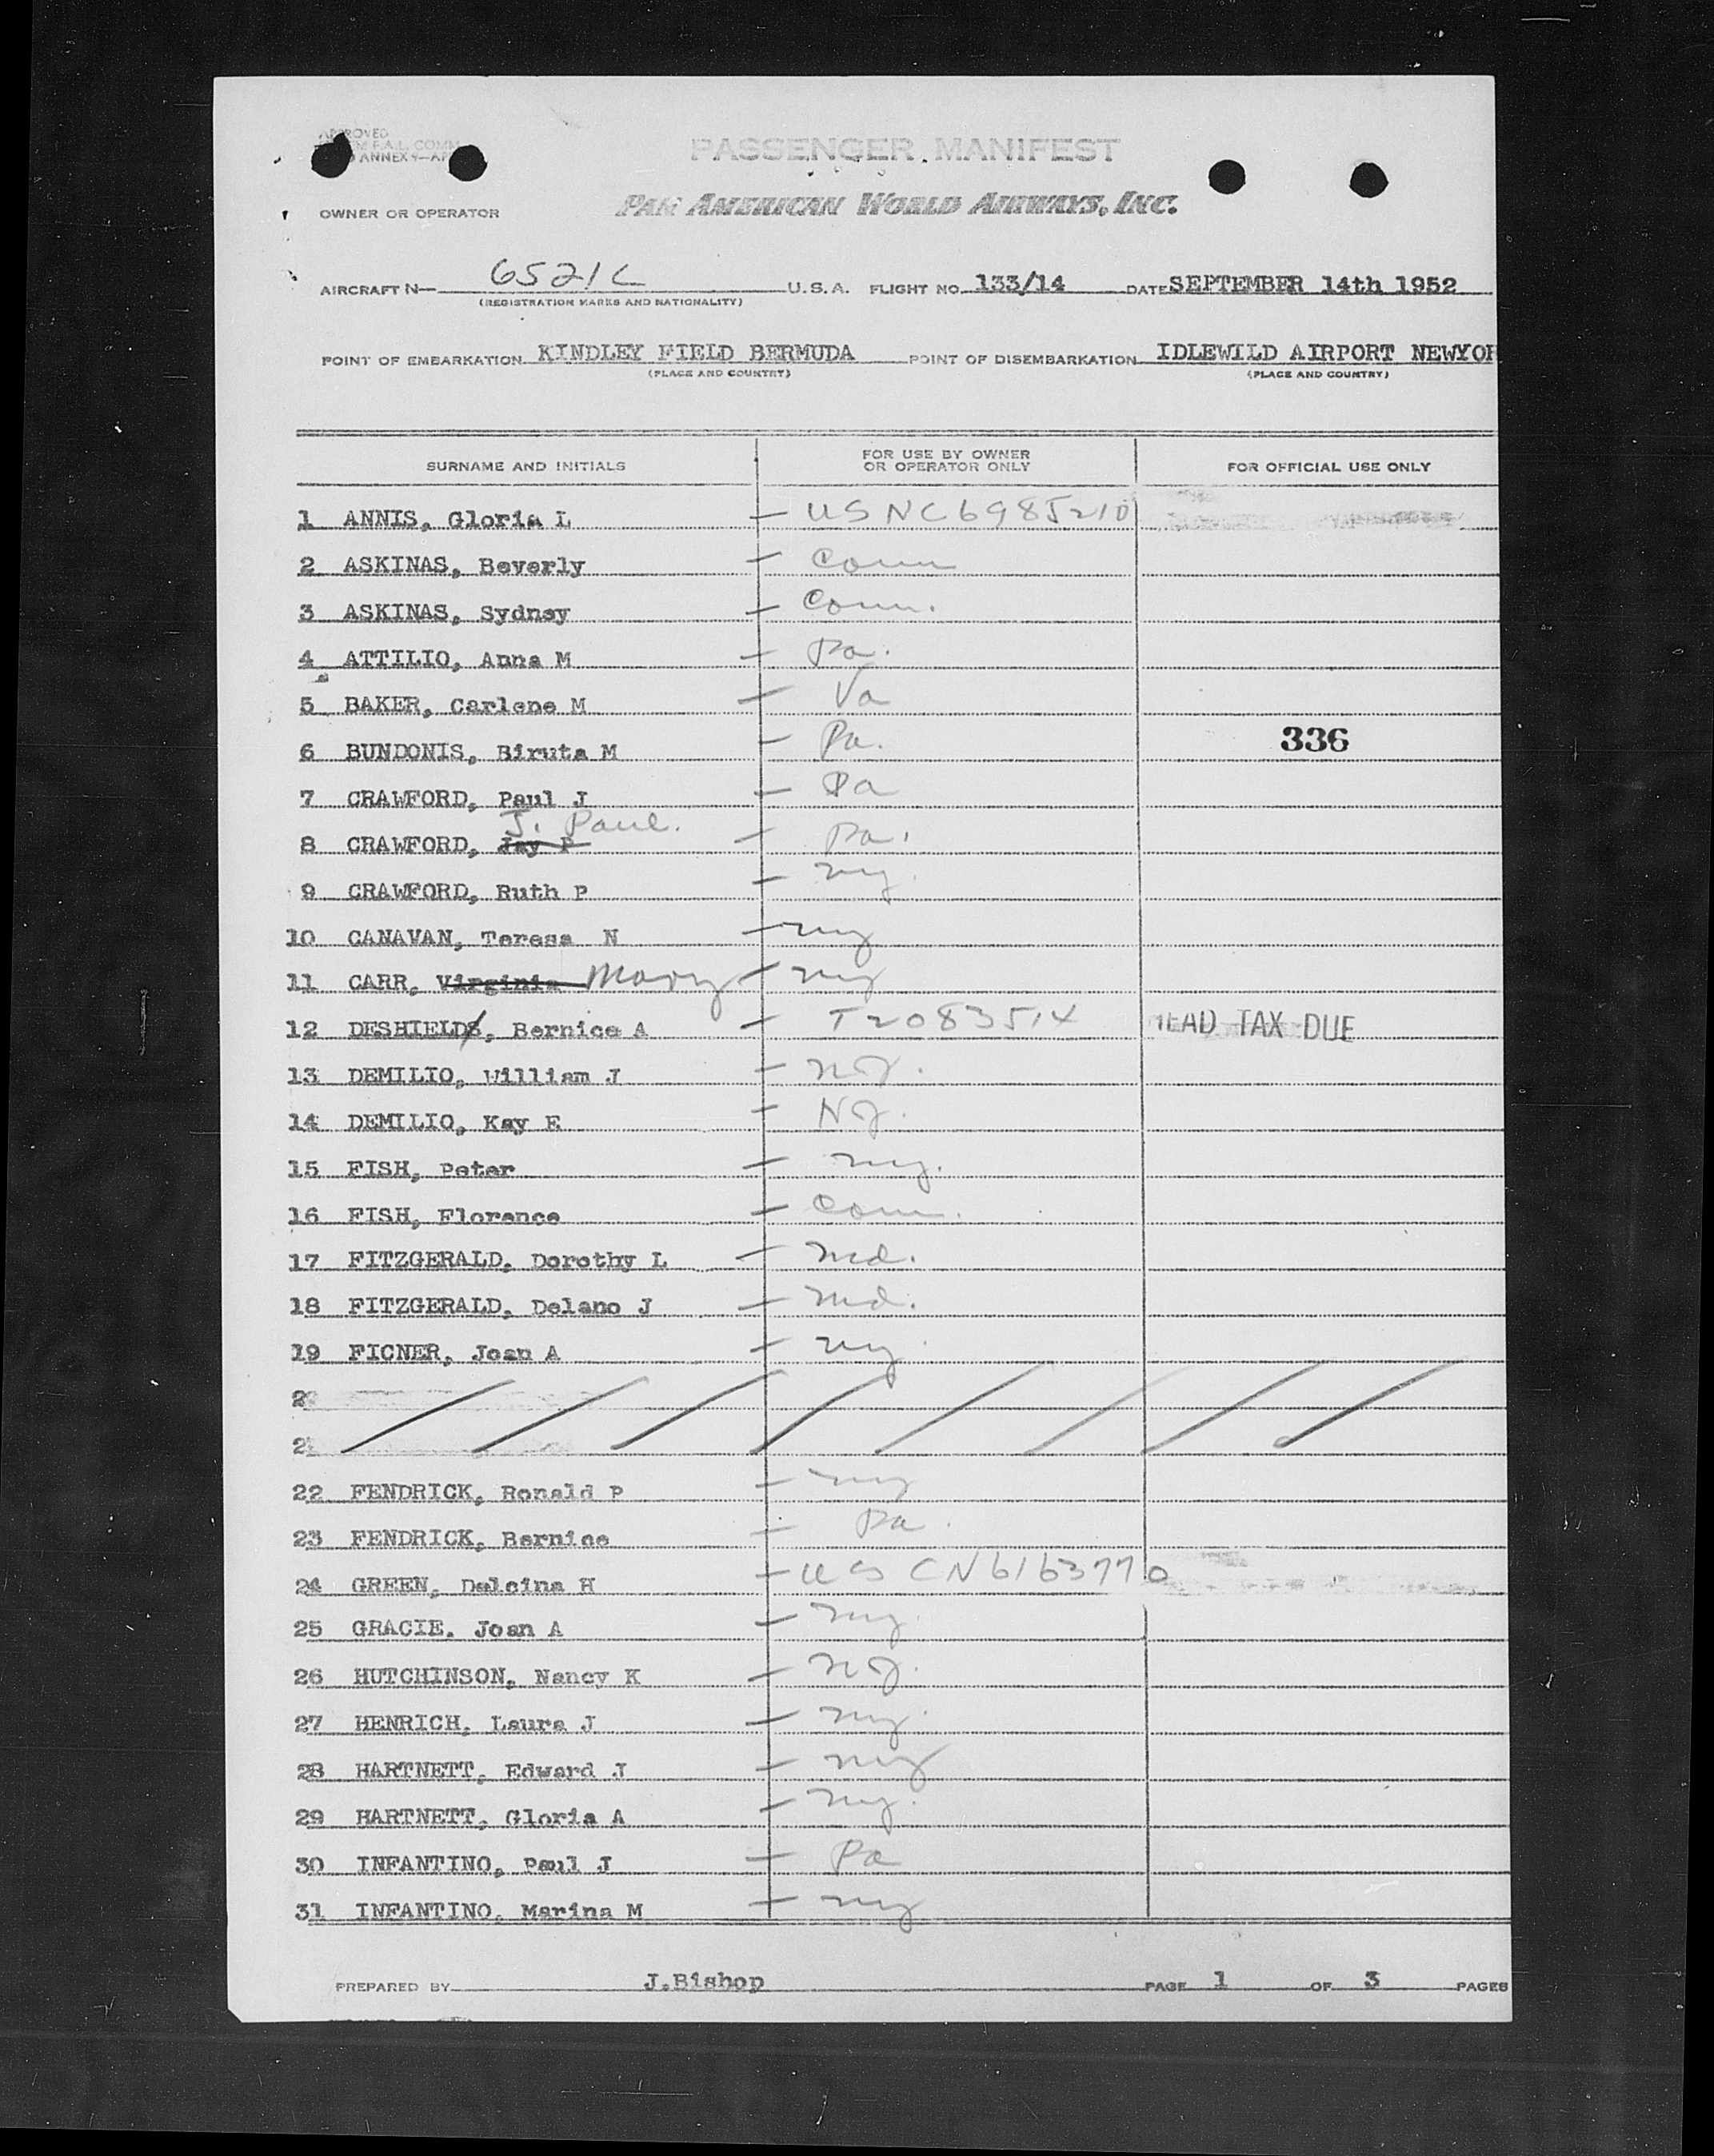 APPROVED
F.A.L. COMM
ANNEX 9-AP
PASSENGER MANIFEST
OWNER OR OPERATOR PAN AMERICAN WORLD AIRWAYS, INC.
AIRCRAFT N— 6521C U.S.A. FLIGHT NO. 133/14 DATE SEPTEMBER 14th 1952
(REGISTRATION MARKS AND NATIONALITY)
POINT OF EMBARKATION KINDLEY FIELD BERMUDA POINT OF DISEMBARKATION IDLEWILD AIRPORT NEWYOR
(PLACE AND COUNTRY) (PLACE AND COUNTRY)
SURNAME AND INITIALS FOR USE BY OWNER OR OPERATOR ONLY FOR OFFICIAL USE ONLY
1 ANNIS, Gloria L — USNC6985210
2 ASKINAS, Beverly — Conn
3 ASKINAS, Sydney — Conn.
4 ATTILIO, Anna M — Pa.
5 BAKER, Carlene M — Va
6 BUNDONIS, Biruta M — Pa. 336
7 CRAWFORD, Paul J — Pa
J. Paul.
8 CRAWFORD, Jay P — Pa.
9 CRAWFORD, Ruth P — ny.
10 CANAVAN, Teresa N — ny
11 CARR, Virginia Mary — ny
12 DESHIELDS, Bernice A — T2083514 HEAD TAX DUE
13 DEMILIO, William J — NJ.
14 DEMILIO, Kay E — NJ.
15 FISH, Peter — ny.
16 FISH, Florence — Conn.
17 FITZGERALD, Dorothy L — md.
18 FITZGERALD, Delano J — md.
19 FICNER, Joan A — ny.
2
2
22 FENDRICK, Ronald P — ny
23 FENDRICK, Bernice — Pa.
24 GREEN, Dalcina H — US CN6163770
25 GRACIE, Joan A — ny.
26 HUTCHINSON, Nancy K — NJ.
27 HENRICH, Laura J — ny.
28 HARTNETT, Edward J — ny
29 HARTNETT, Gloria A — ny.
30 INFANTINO, Paul J — Pa
31 INFANTINO, Marina M — ny
PREPARED BY J.Bishop PAGE 1 OF 3 PAGES